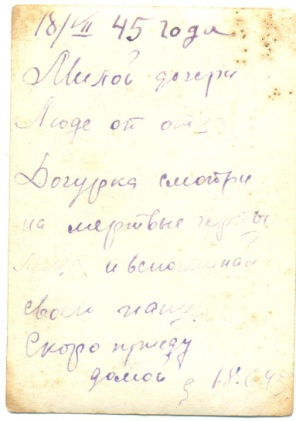 18/VII 45 года
Милой дочери
Люде от от
Догурка смотри
на мертвые черты
и вспоминай
своего папу
Скоро приеду
домой